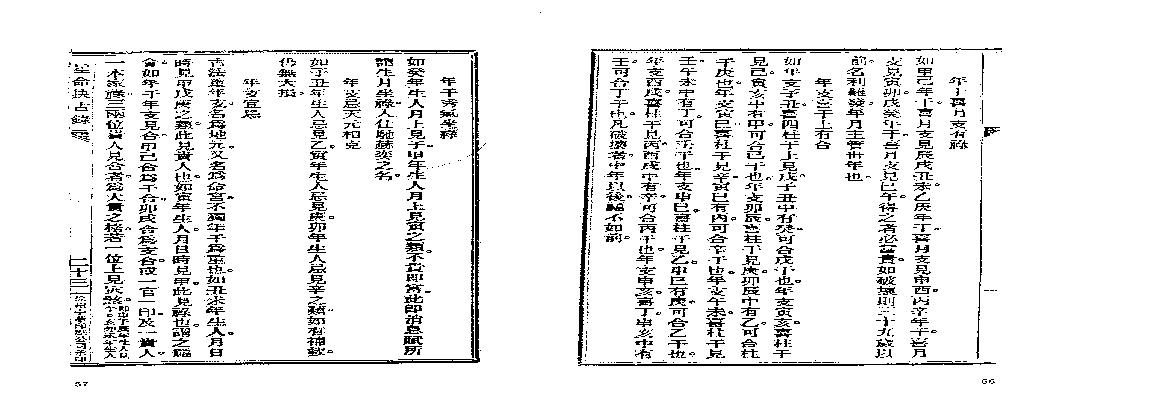 年干喜月支有祿
如甲己年干喜月支見辰戌丑未乙庚年干喜月支見申酉丙辛年干喜月
支見寅卯戊癸年干喜月支見巳午得之者必富貴如破壞則二十九歲以
前名利難發年月主管卅年也
年支喜干上有合
如年支子丑喜四柱干上見戊子丑中有癸可合戊干也年支寅亥喜柱干
見己寅亥中有甲可合己干也年支卯辰喜柱干見庚卯辰中有乙可合柱
干庚也年支寅巳喜柱干見辛寅巳有丙可合辛干也年支午未喜柱干見
壬午未中有丁可合壬干也年支申巳喜柱干見乙申巳有庚可合乙干也
年支酉戌喜柱干見丙酉戌中有辛可合丙干也年支申亥喜丁申亥中有
壬可合丁干也凡破壞者中年以後不如前
66
年干秀氣坐祿
如癸年生人月上見子甲年生人月上見寅之類不貴即富此即消息賦所
謂生月坐祿人仕馳之名
年支忌天元相克
如子丑年生人忌見乙寅年生人忌見庚卯年生人忌見辛之類如有補救
仍無大損
年支宜忌
古法重年支名為地元又名為命宮不獨年干為重也如丑未年生人月日
時見甲戊庚之類此見貴人也如寅年生人月日時見甲此見祿也謂之臨
官如年干年支見合甲己合為干合卯戌合為支合或一官一印及一貴人
一本家祿三兩位貴人見合者為大貴之格若一位上見煞
星命抉古錄
二十三
67